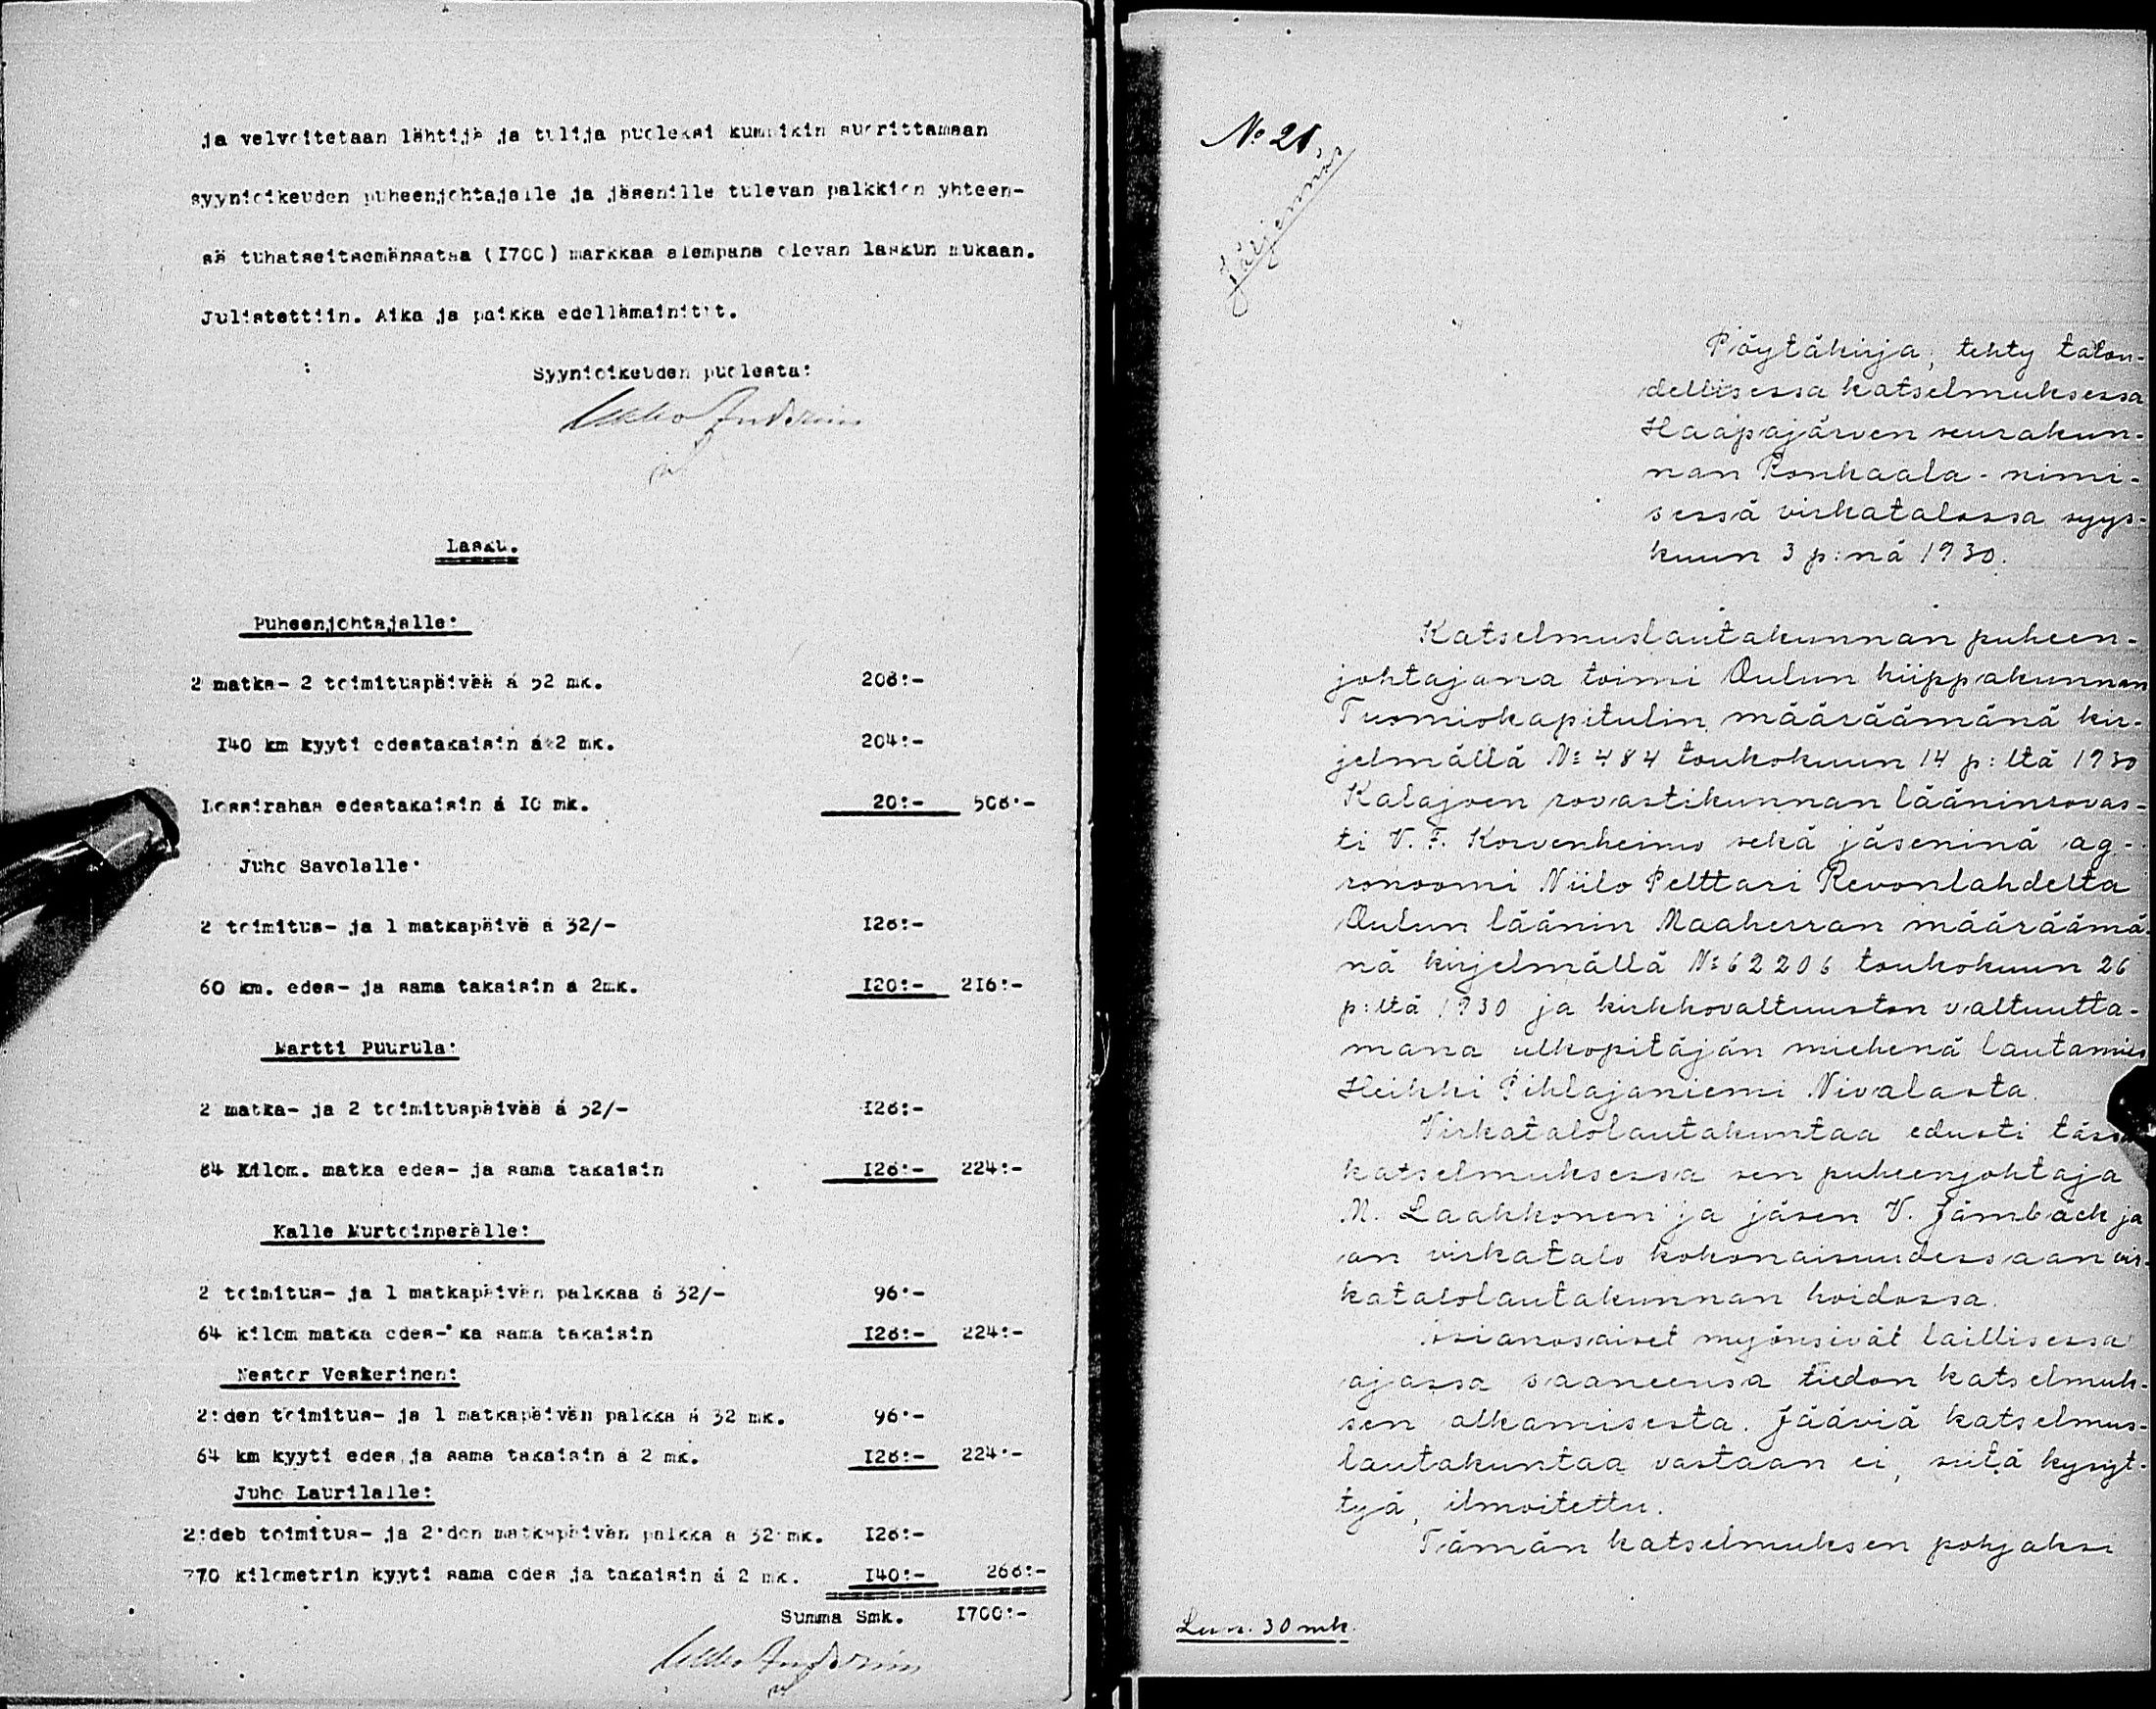 ja velvoitetaan lähtijä ja tulija puoleksi kumpikin suorittamaan
syynioikeuden puheenjohtajalle ja jäsenille tulevan palkkion yhteen-
sä tuhatseitsemänsataa (I700) markkaa alempana olevan laskun mukaan.
Julistettiin. Aika ja paikka edellämainitut.
Syynioikeuden puolesta:
Lasku.
Puheenjohtajalle:
2 matka- 2 toimituspäivää á 52 mk. 208:-
I40 km kyyti edestakaisin á 2 mk. 204:-
Lossirahaa edestakaisin á I0 mk. 20:- 508:-
Juho Savolalle:
2 toimitus- ja 1 matkapäivä á 32/- I28:-
60 km. edes- ja sama takaisin á 2mk. I20:- 2I6:-
Martti Puurula:
2 matka- ja 2 toimituspäivää á 32/- I28:-
84 Kilom. matka edes- ja sama takaisin I28:- 224:-
Kalle Murtoinperälle:
2 toimitus- ja 1 matkapäivän palkkaa á 32/- 96:-
64 kilom matka edes- ka sama takaisin I28:- 224:-
Nestor Veskerinen:
2:den toimitus- ja 1 matkapäivän palkka á 32 mk. 96:-
64 km kyyti edes ja sama takaisin á 2 mk. I28:- 224:-
Juho Laurilalle:
2:deb toimitus- ja 2:den matkapäivän palkka a 32 mk. I28:-
770 kilometrin kyyti sama edes ja takaisin á 2 mk. I40:- 268:-
Summa Smk. I700:-
No 21.
Jäljennös
Pöytäkirja, tehty talou-
dellisessa katselmuksessa
Haapajärven seurakun-
nan Ronkaala-nimi-
sessä virkatalossa syys-
kuun 3 p:nä 1930.
Katselmuslautakunnan puheen-
johtajana toimi Oulun hiippakunnan
Tuomiokapitulin määräämänä kir-
jelmällä No 484 toukokuun 14 p:ltä 1930
Kalajoen rovastikunnan lääninrovas-
ti V. F. Korvenheimo sekä jäseninä ag-
ronoomi Niilo Pelttari Revonlahdelta
Oulun läänin Maaherran määräämä-
nä kirjelmällä No 62206 toukokuun 26
p:ltä 1930 ja kirkkovaltuuston valtuutta-
mana ulkopitäjän miehenä lautamies
Heikki Pihlajaniemi Nivalasta.
Virkatalolautakuntaa edusti tässä
katselmuksessa sen puheenjohtaja
M. Laakkonen ja jäsen V. Jämbäck ja
on virkatalo kokonaisuudessaan vir-
katalolautakunnan hoidossa.
Asianosaiset myönsivät laillisessa
ajassa saaneensa tiedon katselmuk-
sen alkamisesta. Jääviä katselmus-
lautakuntaa vastaan ei, siitä kysyt-
tyä, ilmoitettu.
Tämän katselmuksen pohjaksi
Lun. 30 mk.